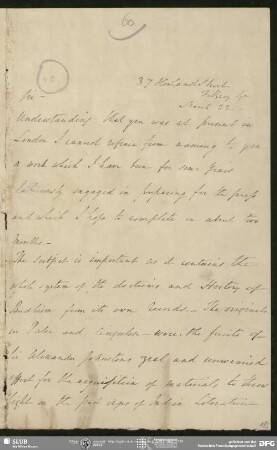 60
42
37 Howland Street
Fitzroy Sq
March 22
Sir
Understanding that you was at present in
London I cannot refrain from naming to you
a work which I have been for some years
laboriously engaged in preparing for the press
and which I hope to complete in about two
months —
The subject is important as it contains the
whole system of the doctrines and History of
Buddhism from its own records — The originals
in Palee and Singhalese — were the fruits of
Sir Alexander Johnston's zeal and unwearied
effort for the acquisition of materials to throw
light on the past ages of Indian Literature
SLUB
DFG